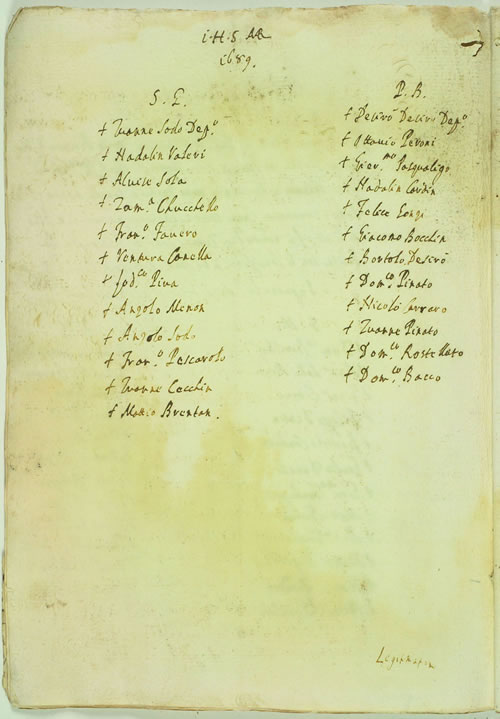 I.H.S. MR
1689.
S. E.
+ Zuanne Sodo Dep.o
+ Nadalin Valeri
+ Aluise Sola
+ Zam.a Chucchello
+ Fran.o Favero
+ Ventura Canella
+ Piva
+ Angolo Menon
+ Angolo Sodo
+ Fran.o Pescarolo
+ Zuanne Cecchin
+ Mattio Brentan.
P. B.
+ Desirò Desirò Dep.o
+ Ottavio Peroni
+ Gier.mo Pasqualigo
+ Nadalin Cardin
+ Felice Longi
+ Giacomo Bocchin
+ Bortolo Desirò
+ Dom.co Pinato
+ Nicolò Carraro
+ Zuanne Pinato
+ Dom.co Rostellato
+ Dom.co Bacco